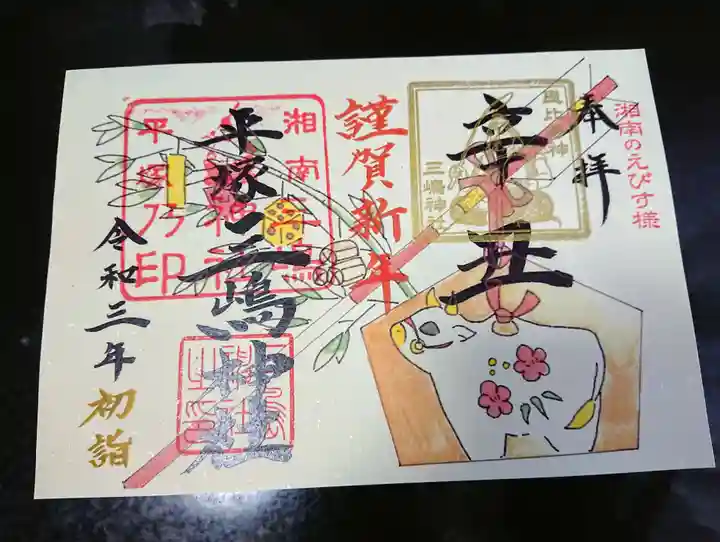 湘南のえびす様
奉拝
辛丑
恵比寿神
三嶋神社
謹賀新年
平塚三嶋神社
湘南三嶋
神社
平塚乃印
令和三年
初詣